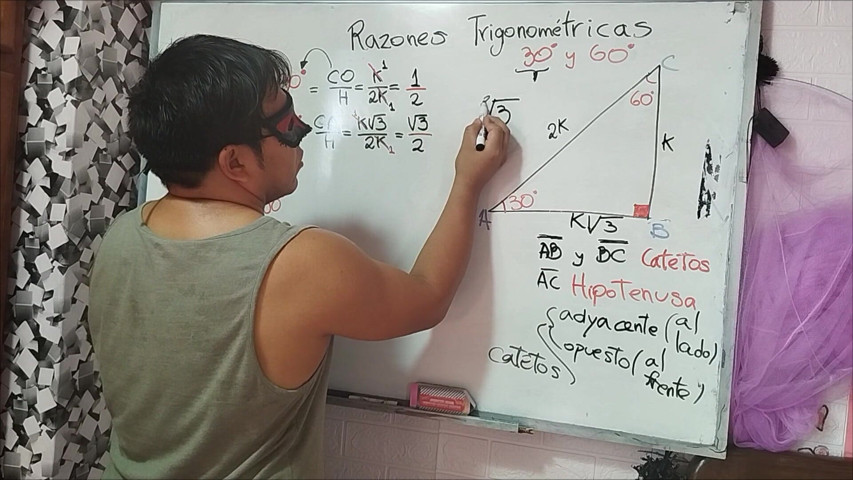 Razones Trigonométricas
30° y 60°
0° = CO/H = K/2K = 1/2
CO/H = K√3/2K = √3/2
²√3
C
60°
2K
K
30°
A
K√3
B
AB y BC Catetos
AC Hipotenusa
catetos
adyacente (al lado)
opuesto (al frente)